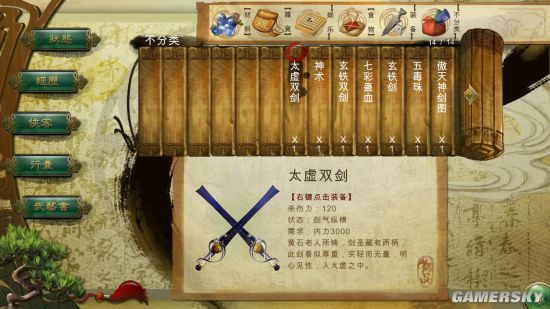 材料
雜貨
娱乐
食物
装备
不分类
不分类
14 / 14
太虚双剑 X1
神木 X1
玄铁双剑 X1
七彩蛊血 X1
玄铁剑 X1
五毒珠 X1
傲天神剑图 X1
狀態
經歷
俠客
行囊
武藝書
太虚双剑
【右键点击装备】
杀伤力：120
状态：剑气纵横
需求：内力3000
黄石老人所铸，剑圣藏有两柄，
此剑看似厚重，实轻而无量，明
心见性，入太虚之中。
物品
GAMERSKY